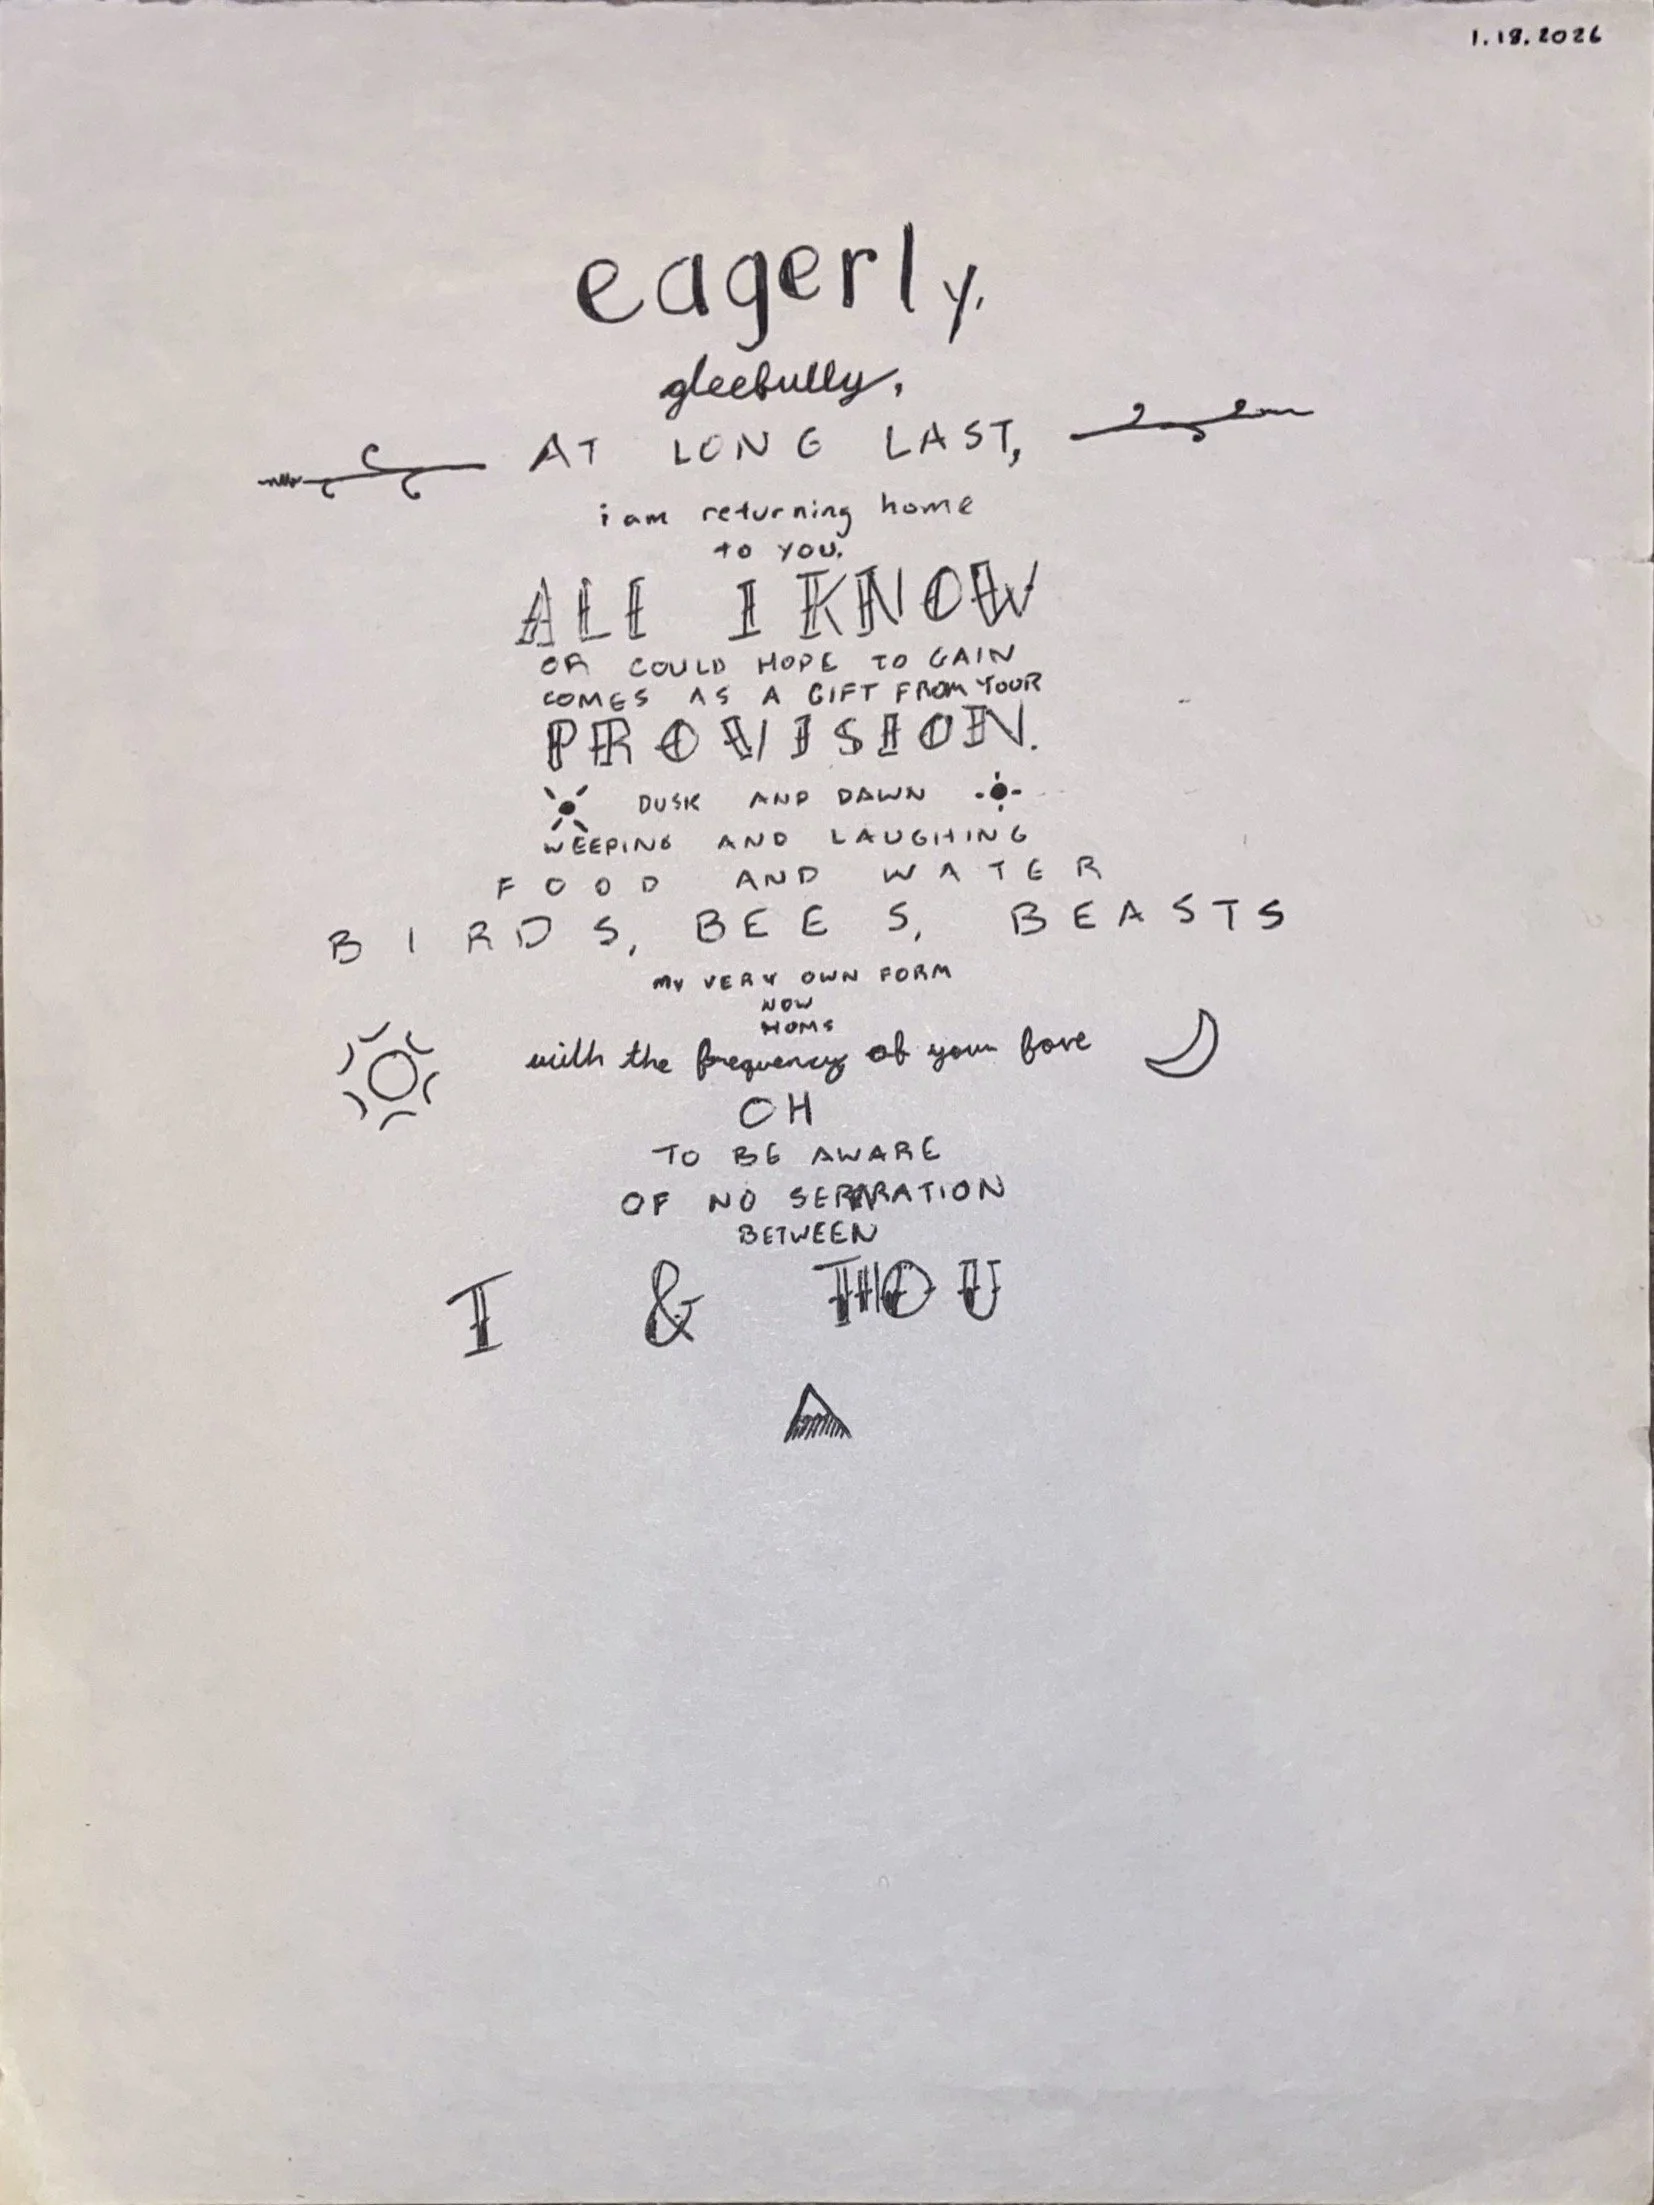 1.18.2026
eagerly,
gleefully,
AT LONG LAST,
i am returning home
to you.
ALL I KNOW
OR COULD HOPE TO GAIN
COMES AS A GIFT FROM YOUR
PROVISION.
DUSK AND DAWN
WEEPING AND LAUGHING
FOOD AND WATER
BIRDS, BEES, BEASTS
MY VERY OWN FORM
NOW
HUMS
with the frequency of your love
OH
TO BE AWARE
OF NO SEPARATION
BETWEEN
I & THOU